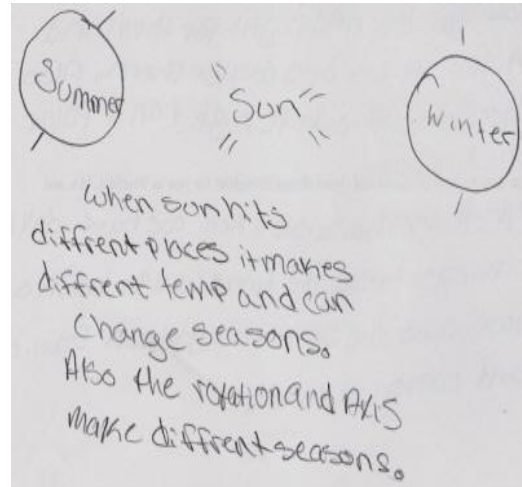 Summer
Sun
Winter
when sun hits
diffrent places it makes
diffrent temp and can
change seasons.
Also the rotation and Axis
make diffrent seasons.